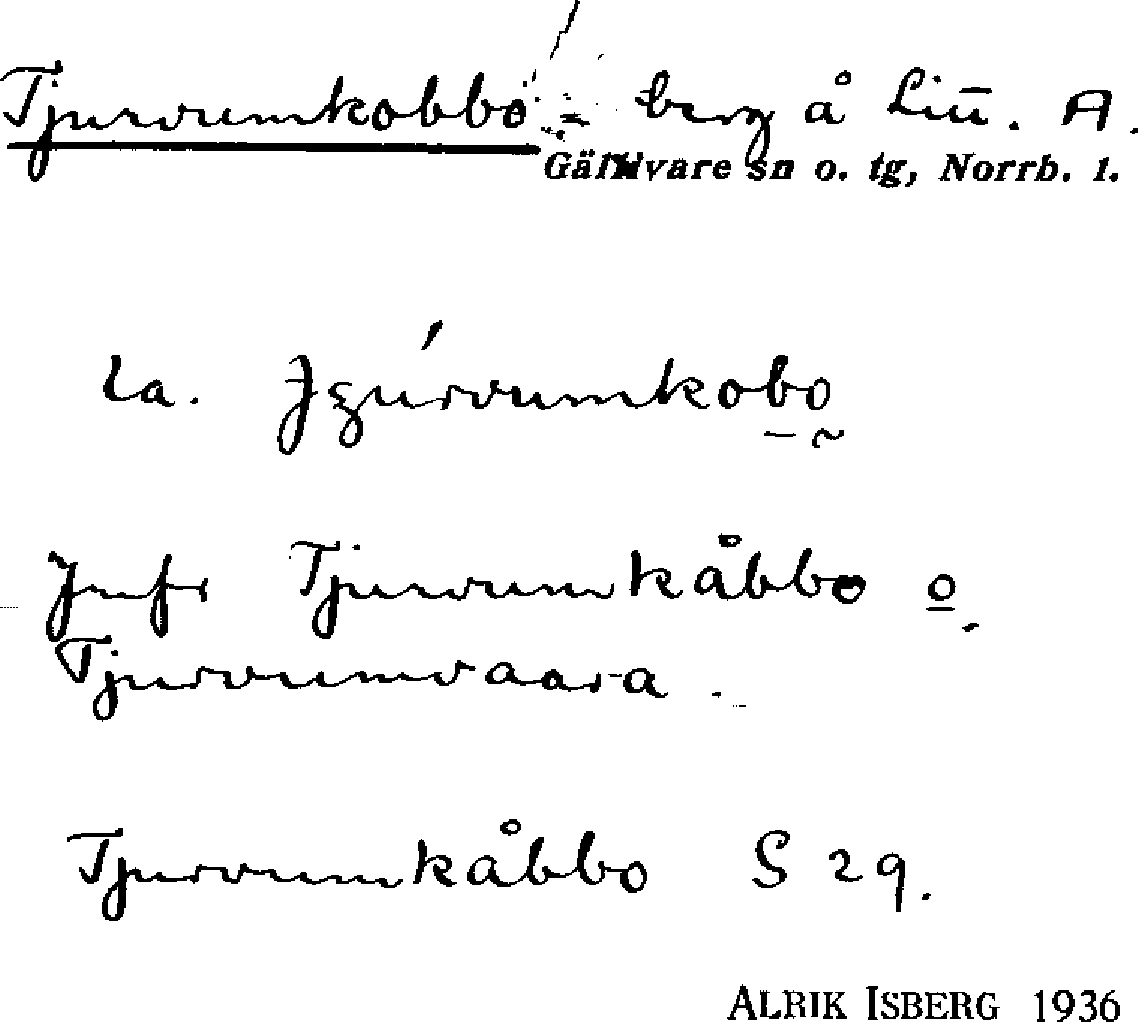 Tjurvumkobbo - berg å Lin. A.
Gällivare sn o. tg, Norrb. l.
La. Jʒúrvumkobo
Jmfr Tjurvumkåbbo o
Tjurvumvaara .
Tjurvumkåbbo S 29.
ALRIK ISBERG 1936